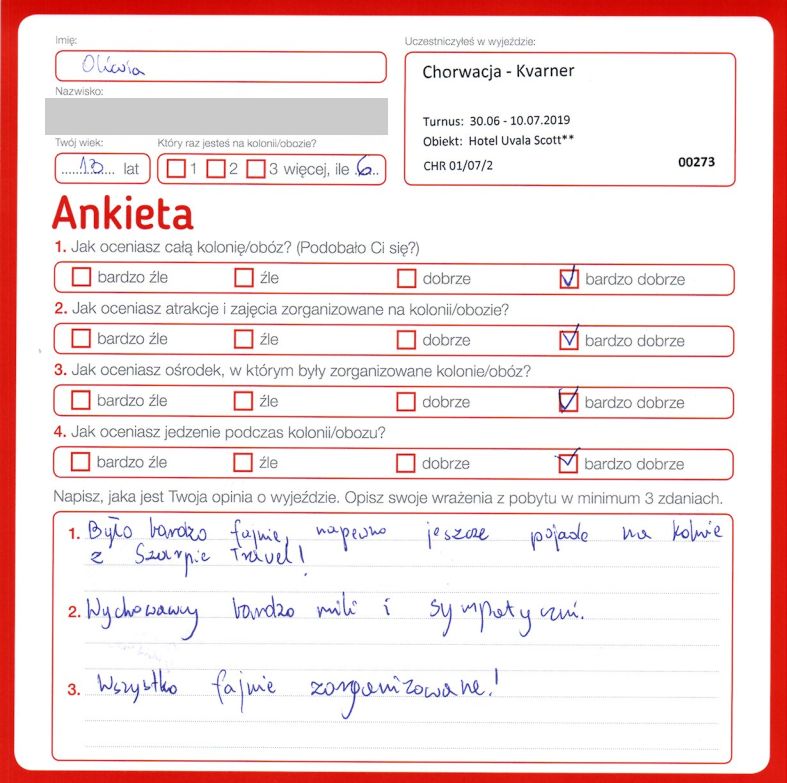 Imię:
Oliwia
Nazwisko:
Twój wiek:
13 lat
Który raz jesteś na kolonii/obozie?
1 2 3 więcej, ile 6
Uczestniczyłeś w wyjeździe:
Chorwacja - Kvarner
Turnus: 30.06 - 10.07.2019
Obiekt: Hotel Uvala Scott**
CHR 01/07/2 00273
Ankieta
1. Jak oceniasz całą kolonię/obóz? (Podobało Ci się?)
bardzo źle źle dobrze bardzo dobrze
2. Jak oceniasz atrakcje i zajęcia zorganizowane na kolonii/obozie?
bardzo źle źle dobrze bardzo dobrze
3. Jak oceniasz ośrodek, w którym były zorganizowane kolonie/obóz?
bardzo źle źle dobrze bardzo dobrze
4. Jak oceniasz jedzenie podczas kolonii/obozu?
bardzo źle źle dobrze bardzo dobrze
Napisz, jaka jest Twoja opinia o wyjeździe. Opisz swoje wrażenia z pobytu w minimum 3 zdaniach.
1. Było bardzo fajnie, napewno jeszcze pojade na kolnie
z Szarpie Travel!
2. Wychowawcy bardzo mili i sympatyczni.
3. Wszystko fajnie zorganizowane!